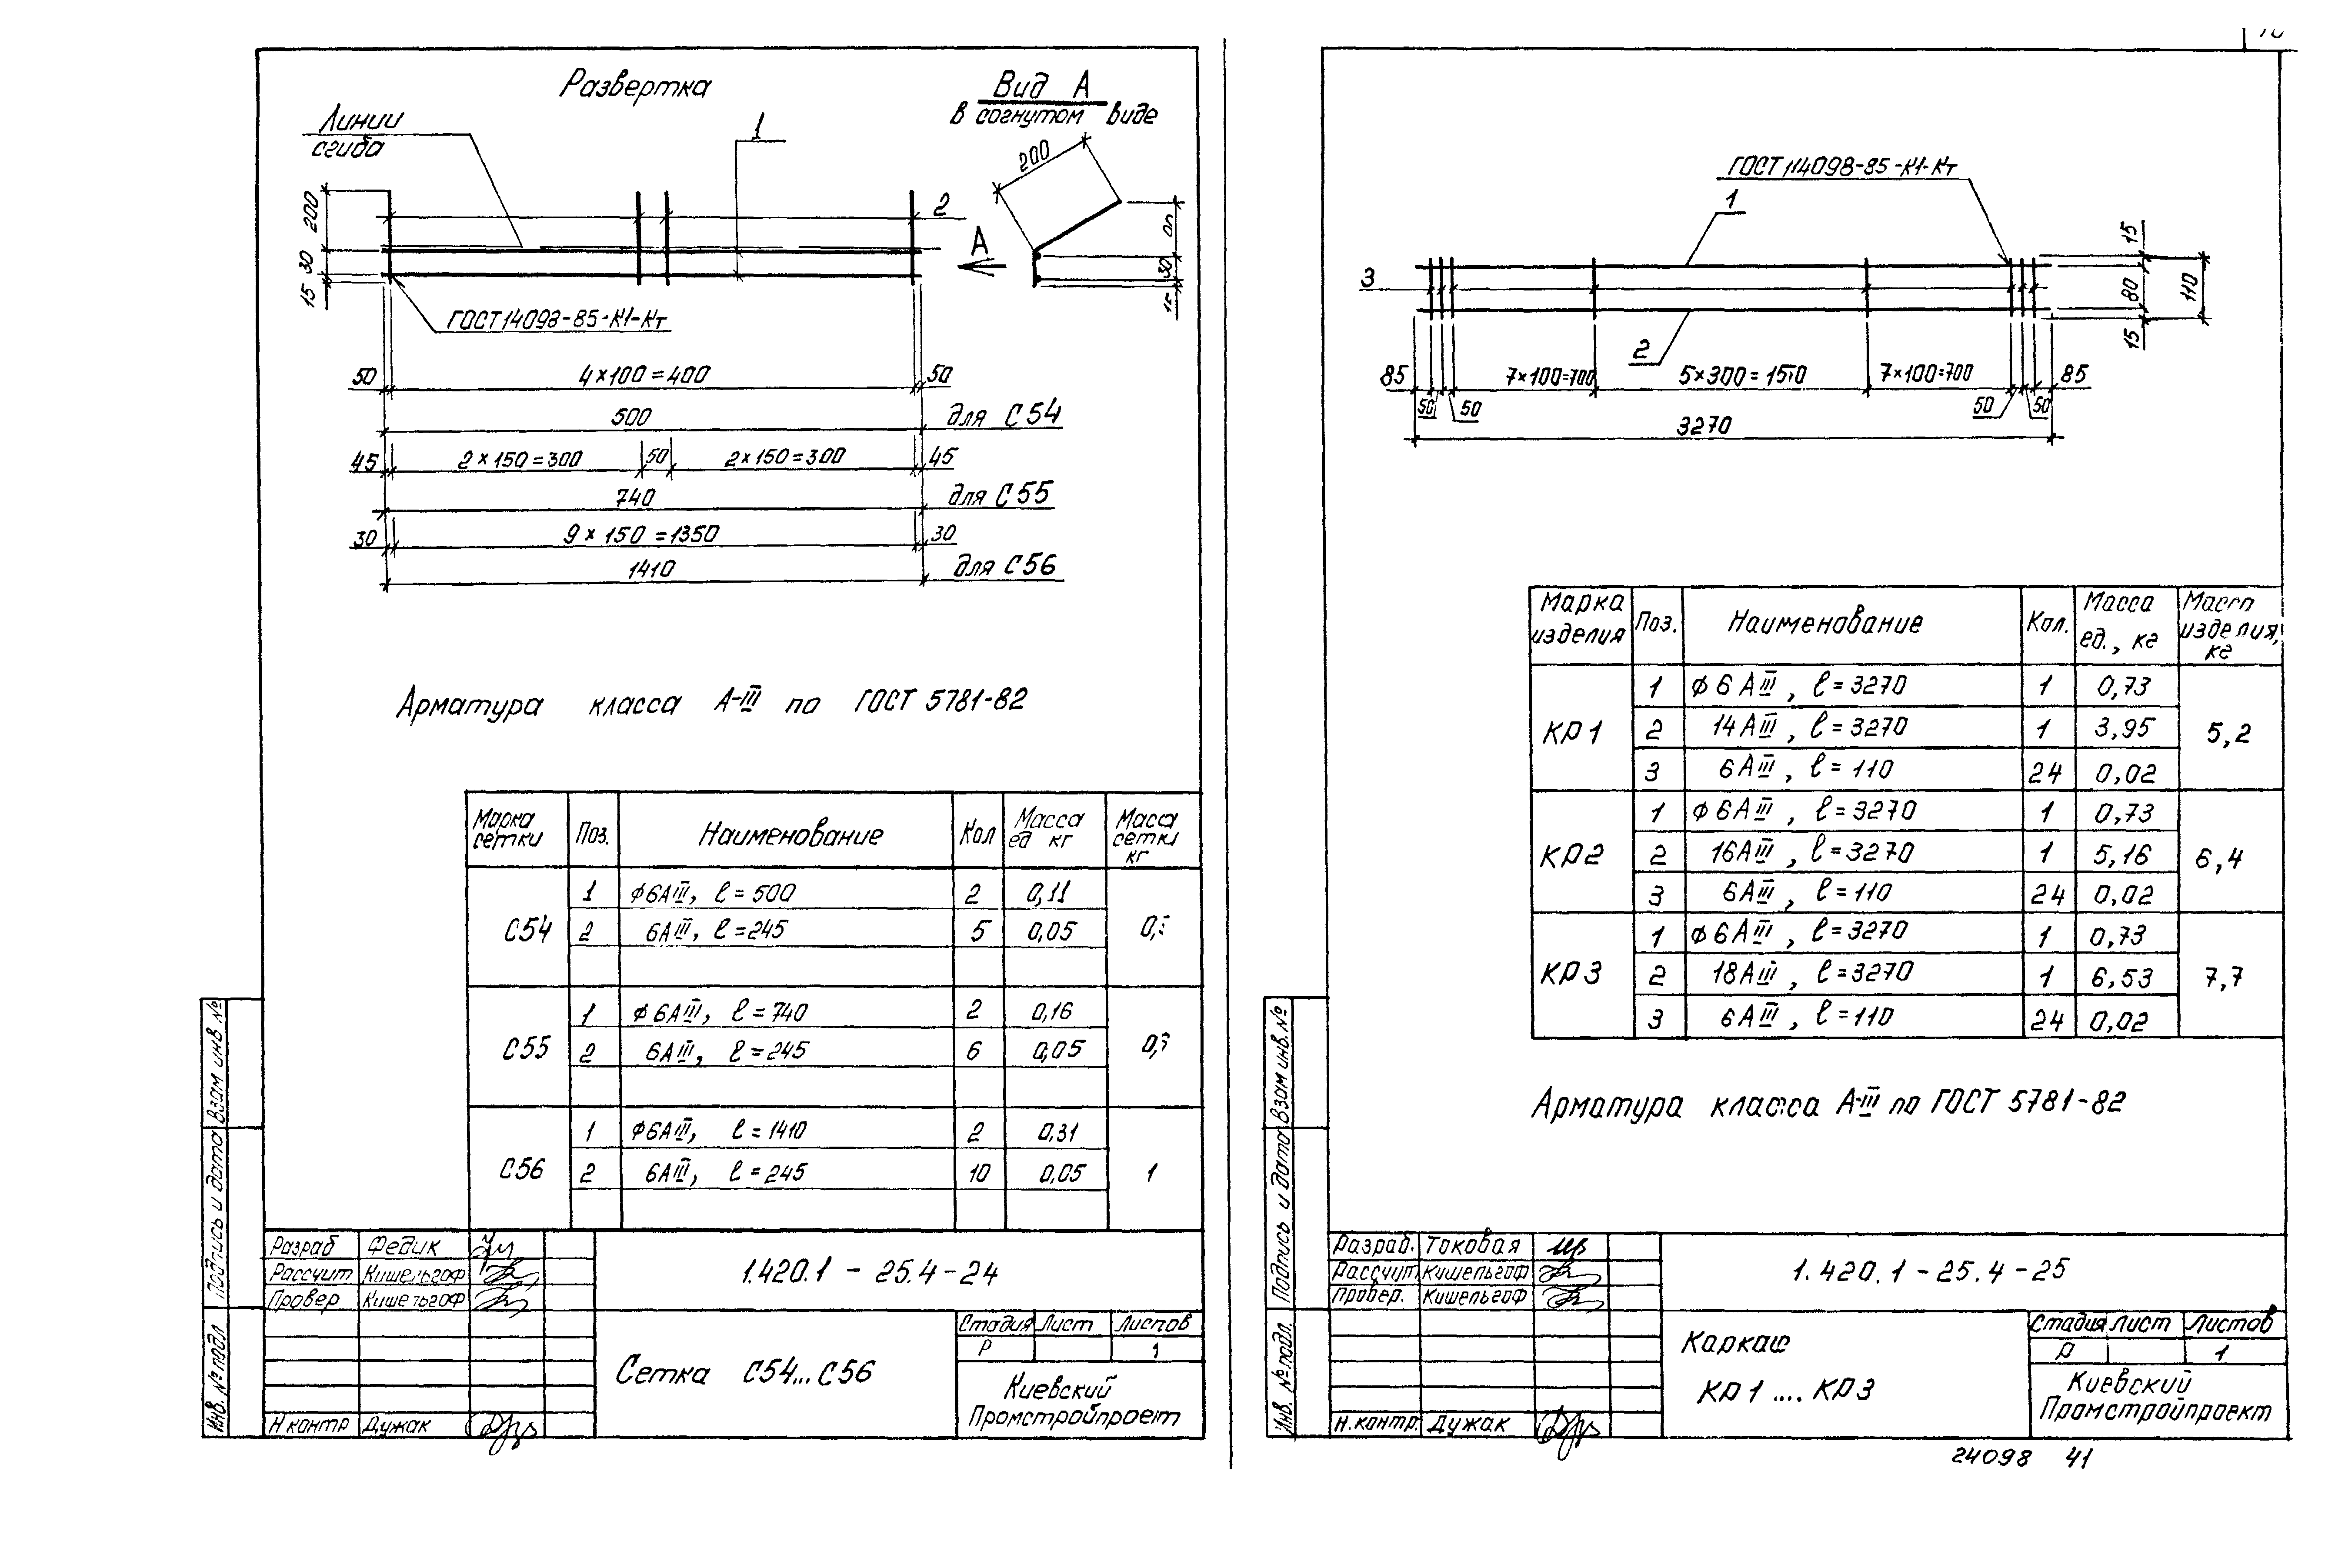 Развертка
Вид А
в согнутом виде
Линии
сгиба
1
2
А
200
30
15
200
30
15
ГОСТ 14098-85-К1-Кт
50 4×100=400 50
500 для С54
45 2×150=300 50 2×150=300 45
740 для С55
30 9×150=1350 30
1410 для С56
Арматура класса А-III по ГОСТ 5781-82
Марка сетки Поз. Наименование Кол Масса ед кг Масса сетки кг
С54
1 ф6АIII, ℓ=500 2 0,11
2 6АIII, ℓ=245 5 0,05
С55
1 ф6АIII, ℓ=740 2 0,16
2 6АIII, ℓ=245 6 0,05
С56 1
1 ф6АIII, ℓ=1410 2 0,31
2 6АIII, ℓ=245 10 0,05
Разраб Федик
Рассчит Кишельгоф
Провер Кишельгоф
Н контр Дужак
1.420.1-25.4-24
Сетка С54...С56
Стадия Лист Листов
Р 1
Киевский
Промстройпроект
Инв. № подл
Подпись и дата
Взам инв №
ГОСТ 14098-85-К1-Кт
1
3
2
15
80
15
110
85 7×100=700 5×300=1500 7×100=700 85
50 50 50 50
3270
Марка изделия Поз. Наименование Кол. Масса ед., кг Масса изделия, кг
КР1 5,2
1 ф6АIII, ℓ=3270 1 0,73
2 14АIII, ℓ=3270 1 3,95
3 6АIII, ℓ=110 24 0,02
КР2 6,4
1 ф6АIII, ℓ=3270 1 0,73
2 16АIII, ℓ=3270 1 5,16
3 6АIII, ℓ=110 24 0,02
КР3 7,7
1 ф6АIII, ℓ=3270 1 0,73
2 18АIII, ℓ=3270 1 6,53
3 6АIII, ℓ=110 24 0,02
Арматура класса А-III по ГОСТ 5781-82
Разраб. Токовая
Рассчит. Кишельгоф
Провер. Кишельгоф
Н.контр. Дужак
1.420.1-25.4-25
Каркас
КР1....КР3
Стадия Лист Листов
Р 1
Киевский
Промстройпроект
Инв. № подл.
Подпись и дата
Взам инв. №
24098 41